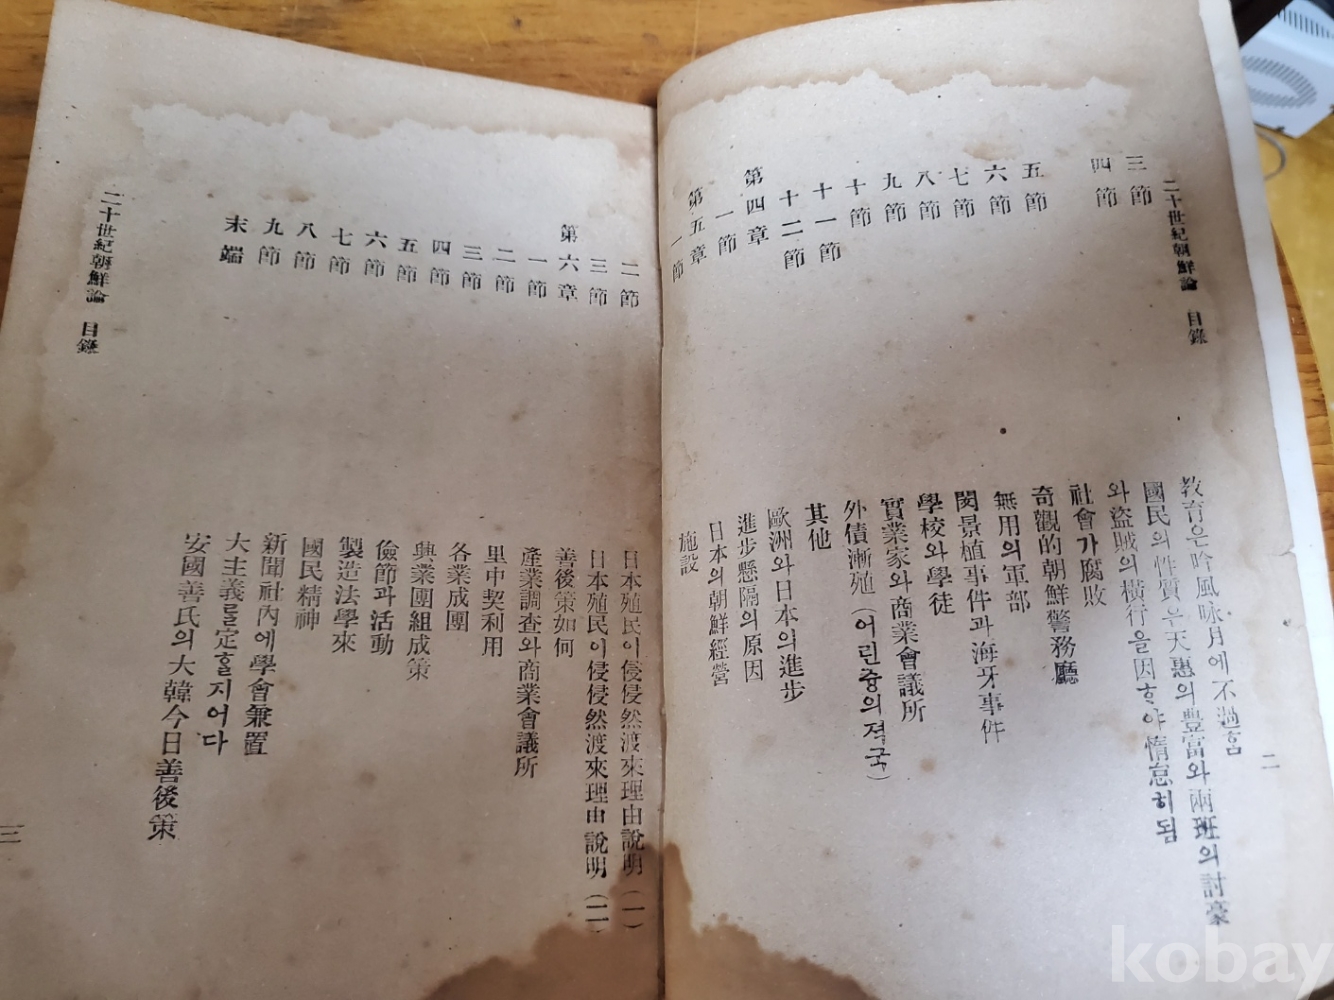 二十世紀朝鮮論 目錄 二
三節 敎育은吟風咏月에不過ᄒᆞᆷ
四節 國民의性質은天惠의豊富와兩班의討豪
와盜賊의橫行을因ᄒᆞ야惰怠히됨
五節 社會가腐敗
六節 奇觀的朝鮮警務廳
七節 無用의軍部
八節 閔景植事件과海牙事件
九節 學校와學徒
十節 實業家와商業會議所
十一節 外債漸殖(어린중의젹국)
十二節 其他
第四章 歐洲와日本의進步
一節 進步懸隔의原因
第五章 日本의朝鮮經營
一節 施設
二節 日本殖民이侵侵然渡來理由說明(一)
三節 日本殖民이侵侵然渡來理由說明(二)
第六章 善後策如何
一節 產業調查와商業會議所
二節 里中契利用
三節 各業成團
四節 興業團組成策
五節 儉節과活動
六節 製造法學來
七節 國民精神
八節 新聞社內에學會兼置
九節 大主義를定ᄒᆞᆯ지어다
末端 安國善氏의大韓今日善後策
二十世紀朝鮮論 目錄 三
kobay